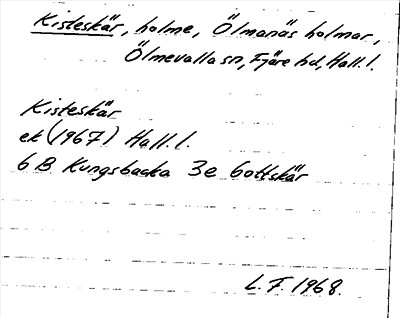 Kisteskär, holme, Ölmanäs holmar,
Ölmevalla sn, Fjäre hd, Hall. l.
Kisteskär
ek (1967) Hall. l.
6 B Kungsbacka 3e Gottskär
L. F. 1968.